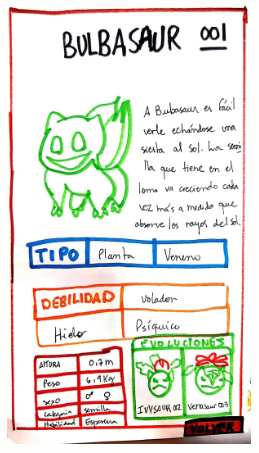 BULBASAUR 001
A Bulbasaur es fácil
verle echándose una
siesta al sol. La semi
lla que tiene en el
lomo va creciendo cada
vez más a medida que
absorve los rayos del sol.
TIPO Planta Veneno
DEBILIDAD Volador
Hielo Psíquico
ALTURA 0,7m
Peso 6,9Kg
SEXO ♂ ♀
Categoria semilla
Habilidad Espesura
EVOLUCIONES
IVYSAUR 002 Venasaur 003
VOLVER